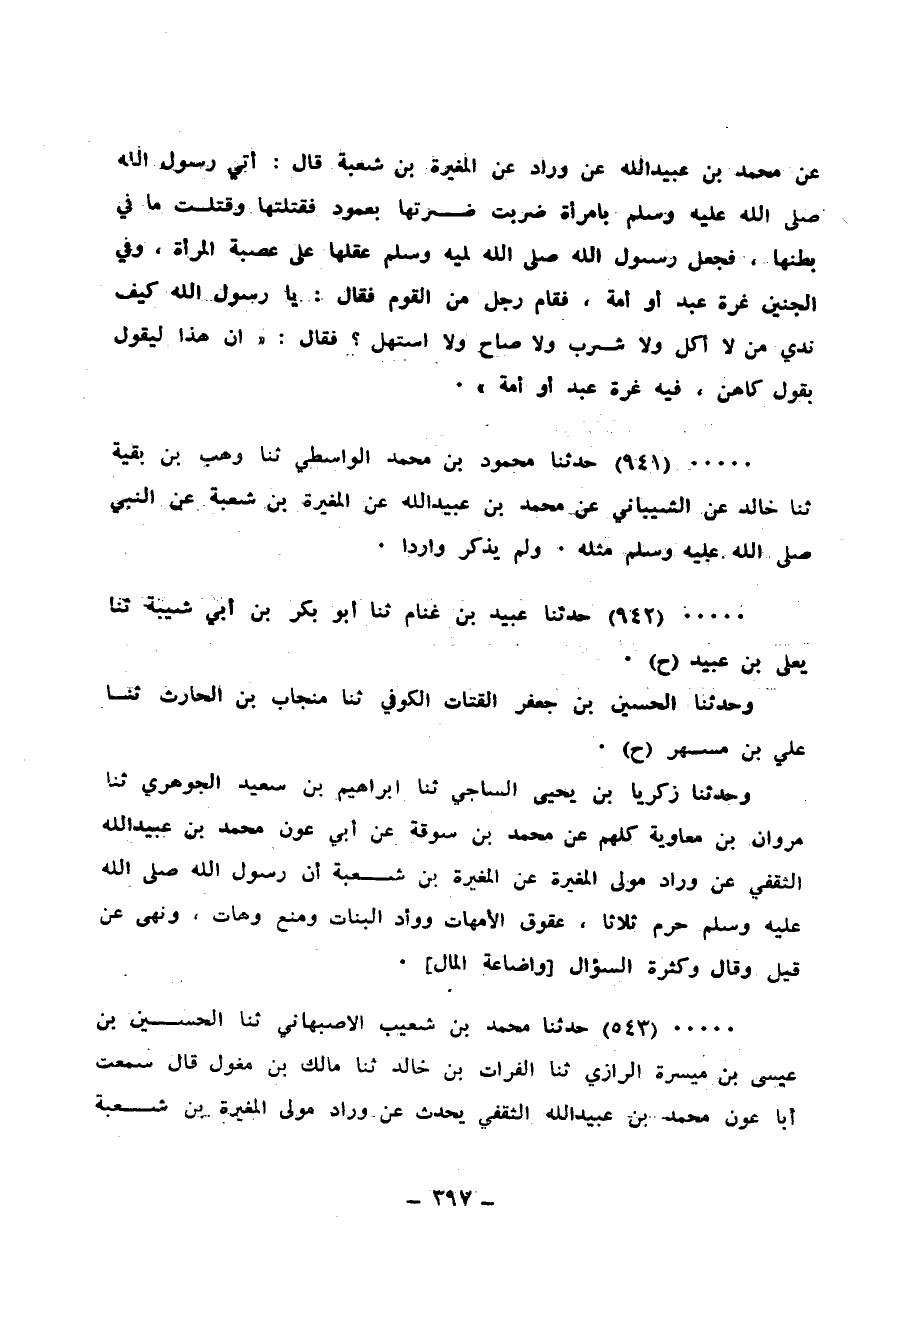 عن محمد بن عبيدالله عن وراد عن المغيرة بن شعبة قال : أتي رسول الله
صلى الله عليه وسلم بامرأة ضربت ضـــرتها بعمود فقتلتها وقتلــت ما في
بطنها ، فجعل رسول الله صلى الله ليه وسلم عقلها على عصبة المرأة ، وفي
الجنين غرة عبد أو أمة ، فقام رجل من القوم فقال : يا رسول الله كيف
ندي من لا أكل ولا شــرب ولا صاح ولا استهل ؟ فقال : « ان هذا ليقول
بقول كاهن ، فيه غرة عبد أو أمة » ٠
٠٠٠٠٠ (٩٤١) حدثنا محمود بن محمد الواسطي ثنا وهب بن بقية
ثنا خالد عن الشيباني عن محمد بن عبيدالله عن المغيرة بن شعبة عن النبي
صلى الله عليه وسلم مثله ٠ ولم يذكر واردا ٠
٠٠٠٠٠ (٩٤٢) حدثنا عبيد بن غنام ثنا أبو بكر بن أبي شيبة ثنا
يعلى بن عبيد (ح) ٠
وحدثنا الحسين بن جعفر القتات الكوفي ثنا منجاب بن الحارث ثنــا
علي بن مســهر (ح) ٠
وحدثنا زكريا بن يحيى الساجي ثنا ابراهيم بن سعيد الجوهري ثنا
مروان بن معاوية كلهم عن محمد بن سوقة عن أبي عون محمد بن عبيدالله
الثقفي عن وراد مولى المغيرة عن المغيرة بن شــعبة أن رسول الله صلى الله
عليه وسلم حرم ثلاثا ، عقوق الأمهات ووأد البنات ومنع وهات ، ونهى عن
قيل وقال وكثرة السؤال [واضاعة المال] ٠
٠٠٠٠٠ (٥٤٣) حدثنا محمد بن شعيب الاصبهاني ثنا الحســين بن
عيسى بن ميسرة الرازي ثنا الفرات بن خالد ثنا مالك بن مغول قال سمعت
أبا عون محمد بن عبيدالله الثقفي يحدث عن وراد مولى المغيرة بن شــعبة
ـ ٣٩٧ ـ